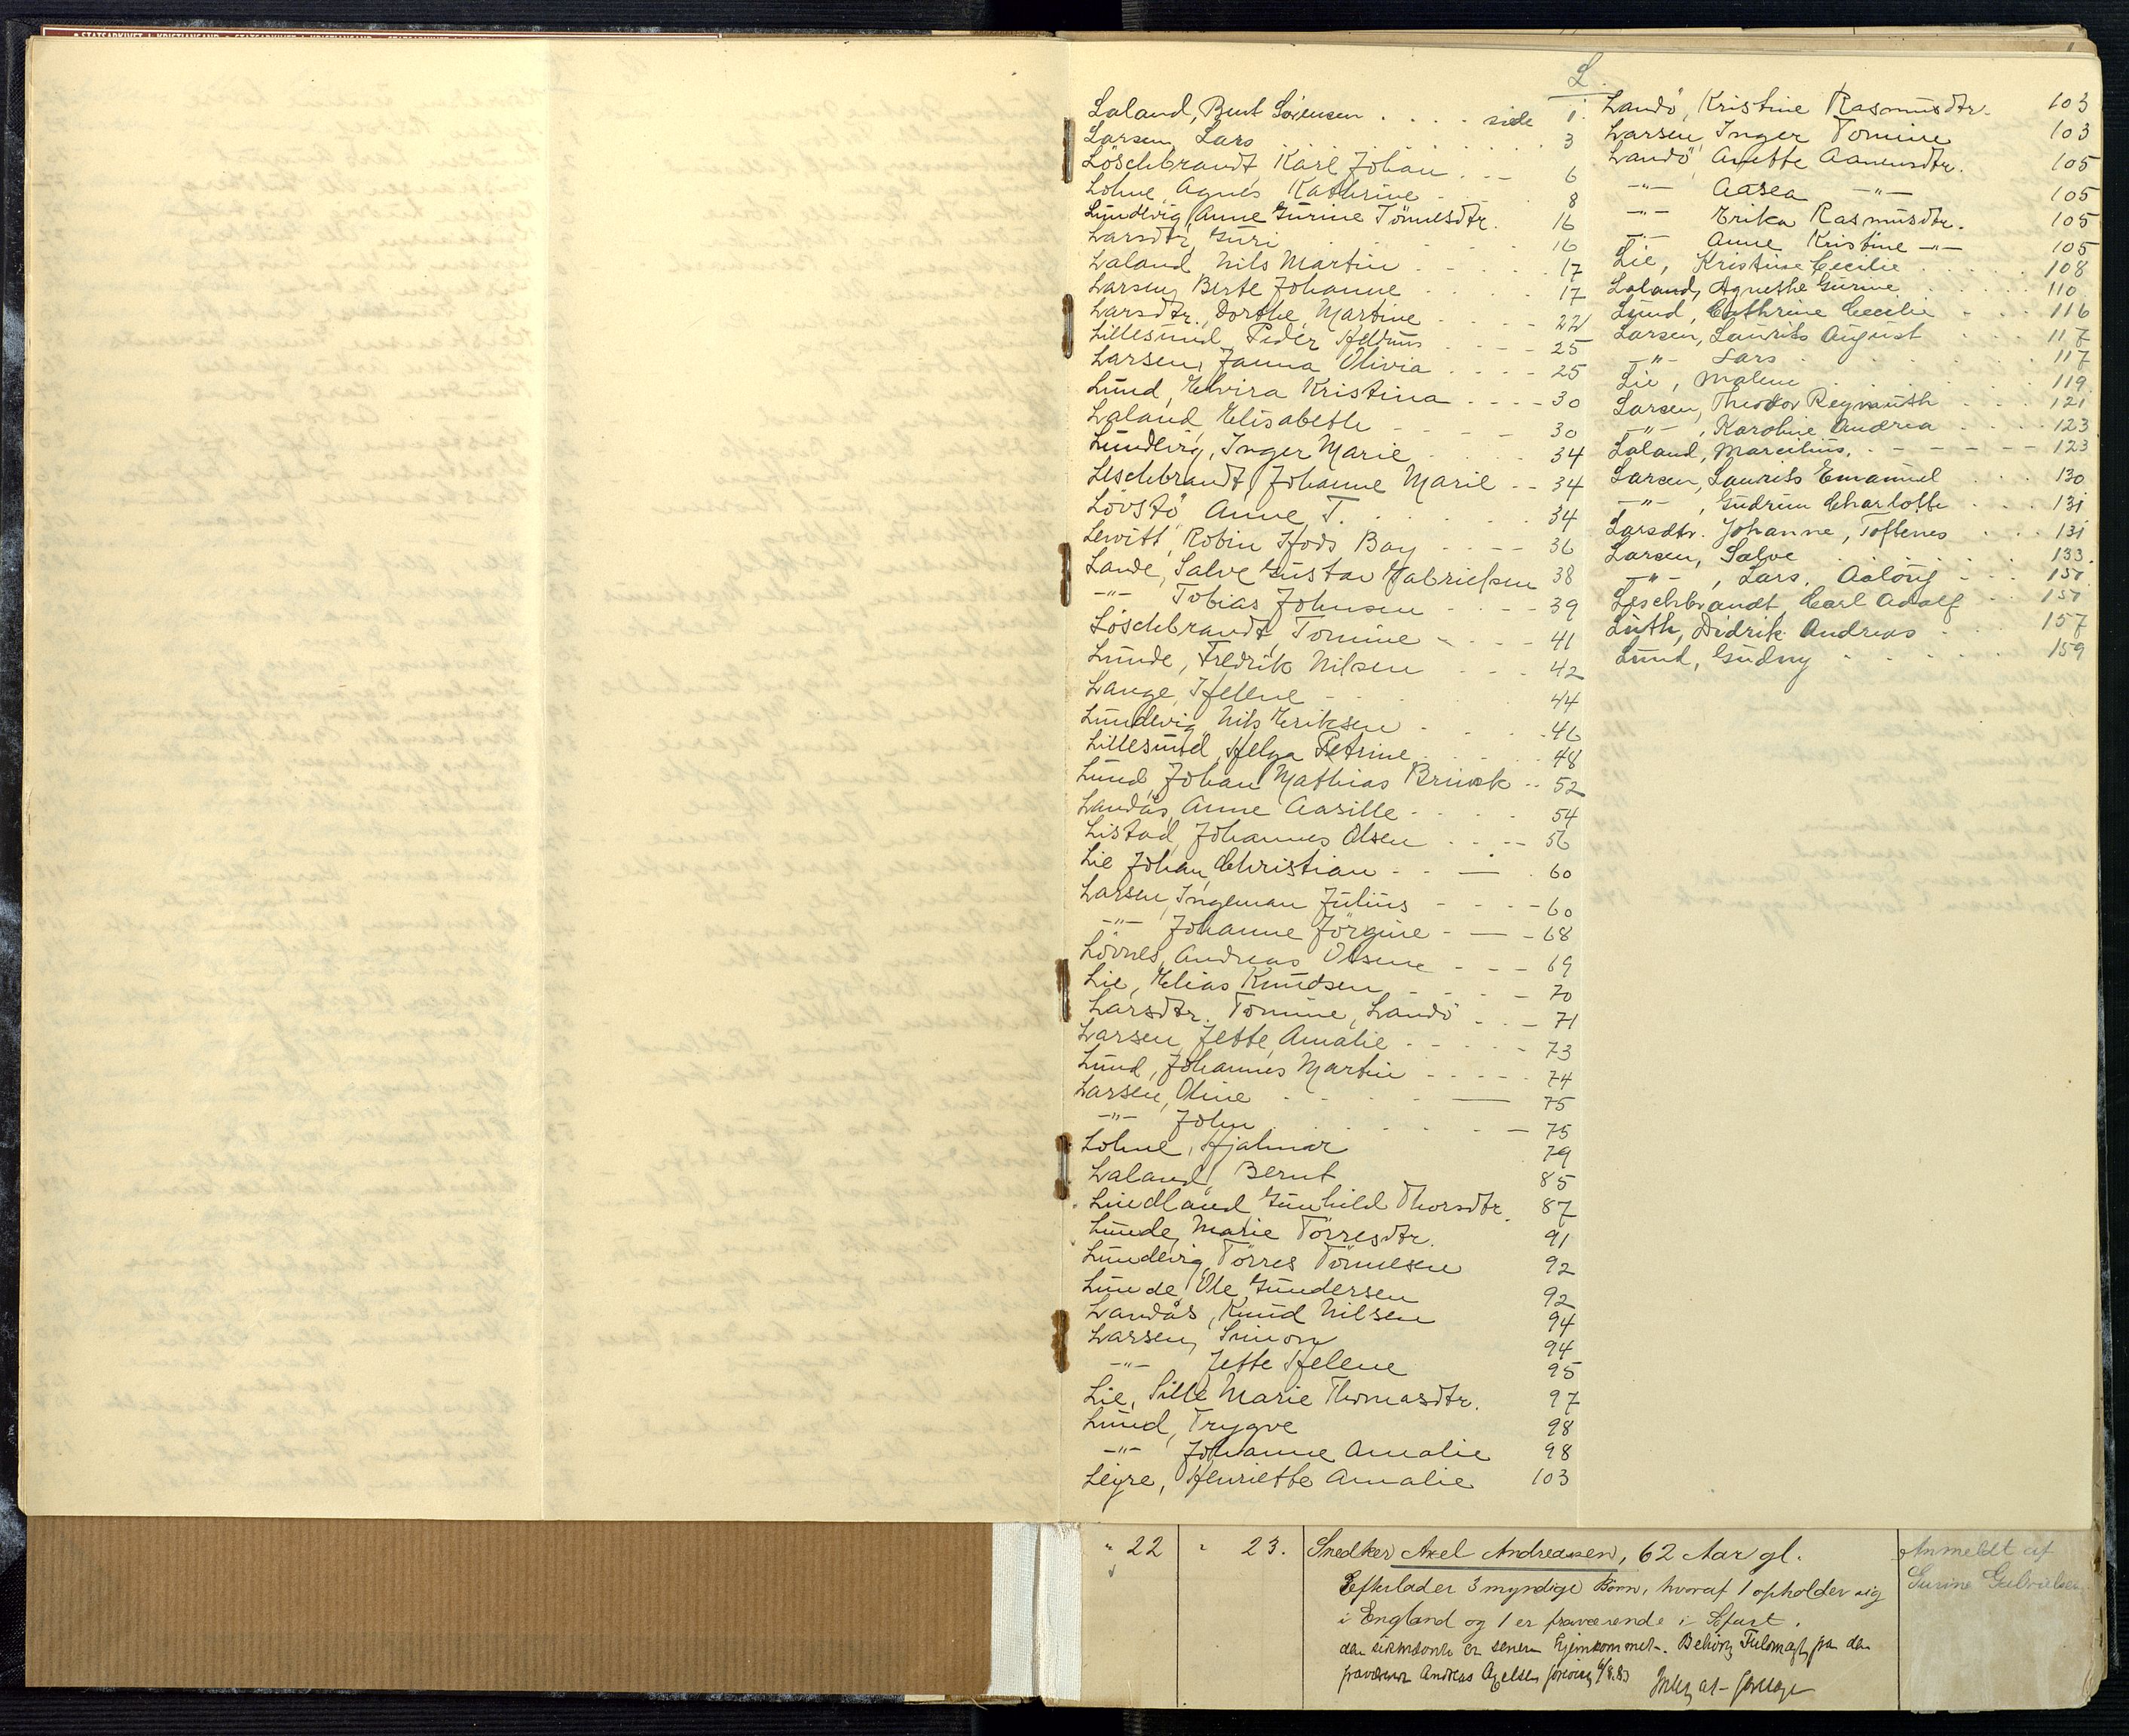 L.
Laland, Bent Sörensen . . . . side 1.
Larsen, Lars 3
Löschbrandt, Karl Johan . -- 6
Lohne, Agnes Kathrine 8
Lundevig, Anne Gurine Tönnesdtr. 16
Larsdtr, Guri 16
Laland, Nils Martin 17
Larsen, Berte Johanne 17
Larsdtr., Dorthe Martine 22
Lillesund, Peder 25
Larsen, Janna Olivia 25
Lund, Elvira Kristina 30
Laland, Elisabeth 30
Lundevig, Inger Marie 34
Leschbrandt, Johanne Marie 34
Lövstö, Anne T. 34
Lewitt, Robin Hods Bay 36
Lande, Salve Gustav Gabrielsen 38
-"- Tobias Johnsen 39
Löschbrandt, Tomine 41
Lunde, Fredrik Nilsen 42
Lange, Helene 44
Lundevig, Nils Eriksen 46
Lillesund, Helga Petrine 48
Lund, Johan Mathias Brinck 52
Landås, Anne Aasille 54
Listad, Johannes Olsen 56
Lie, Johan Christian 60
Larsen, Ingeman Julius 60
-"- Johanne Jörgine 68
Lövnes, Andreas Olsen 69
Lie, Elias Knudsen 70
Larsdtr. Tomine, Landö 71
Larsen, Jette Amalie 73
Lund, Johannes Martin 74
Larsen, Oline 75
-"- John 75
Lohne, Hjalmar 79
Laland, Bernt 85
Lindland, Gunhild Thorsdtr. 87
Lunde, Marie Törresdtr. 91
Lundevig, Törres Tönnesen 92
Lunde, Ole Gundersen 92
Landås, Knud Nilsen 94
Larsen, Simon 94
-"- Jette Helene 95
Lie, Sille Marie Thomasdtr. 97
Lund, Trygve 98
-"- Johanne Amalie 98
Leire, Henriette Amalie 103
Landö, Kristine Rasmusdtr. 103
Larsen, Inger Tomine 103
Landö, Anette Aanensdtr. 105
-"- Aasea -"- 105
-"- Erika Rasmusdtr. 105
-"- Anne Kristine -"- 105
Lie, Kristine Cecilie 108
Laland, Agnethe Gurine 110
Lund, Cathrine Cecilie 116
Larsen, Laurits August 117
-"- Lars 117
Lie, Malene 119
Larsen, Theodor 121
-"-, Karoline Andrea 123
Laland, Marcelius. 123
Larsen, Laurits Emanuel 130
-"-, Gudrun Charlotte 131
Larsdtr. Johanne, Toftenes 131
Larsen, Salve 133.
-"-, Lars. 151
Leschbrandt, Carl Adolf 151
Luth, Didrik Andreas 157
Lund, Gudny 159
" 22 " 23. Snedker Axel Andreassen, 62 Aar gl.
Efterlader 3 myndige Börn, hvoraf 1 opholder sig
i England og 1 er fraværende i Sfart.
er senere hjemkommet. Fuldmagt fra den
Andreas Axelsen
Anmeldt af
Gurine Gabrielsen